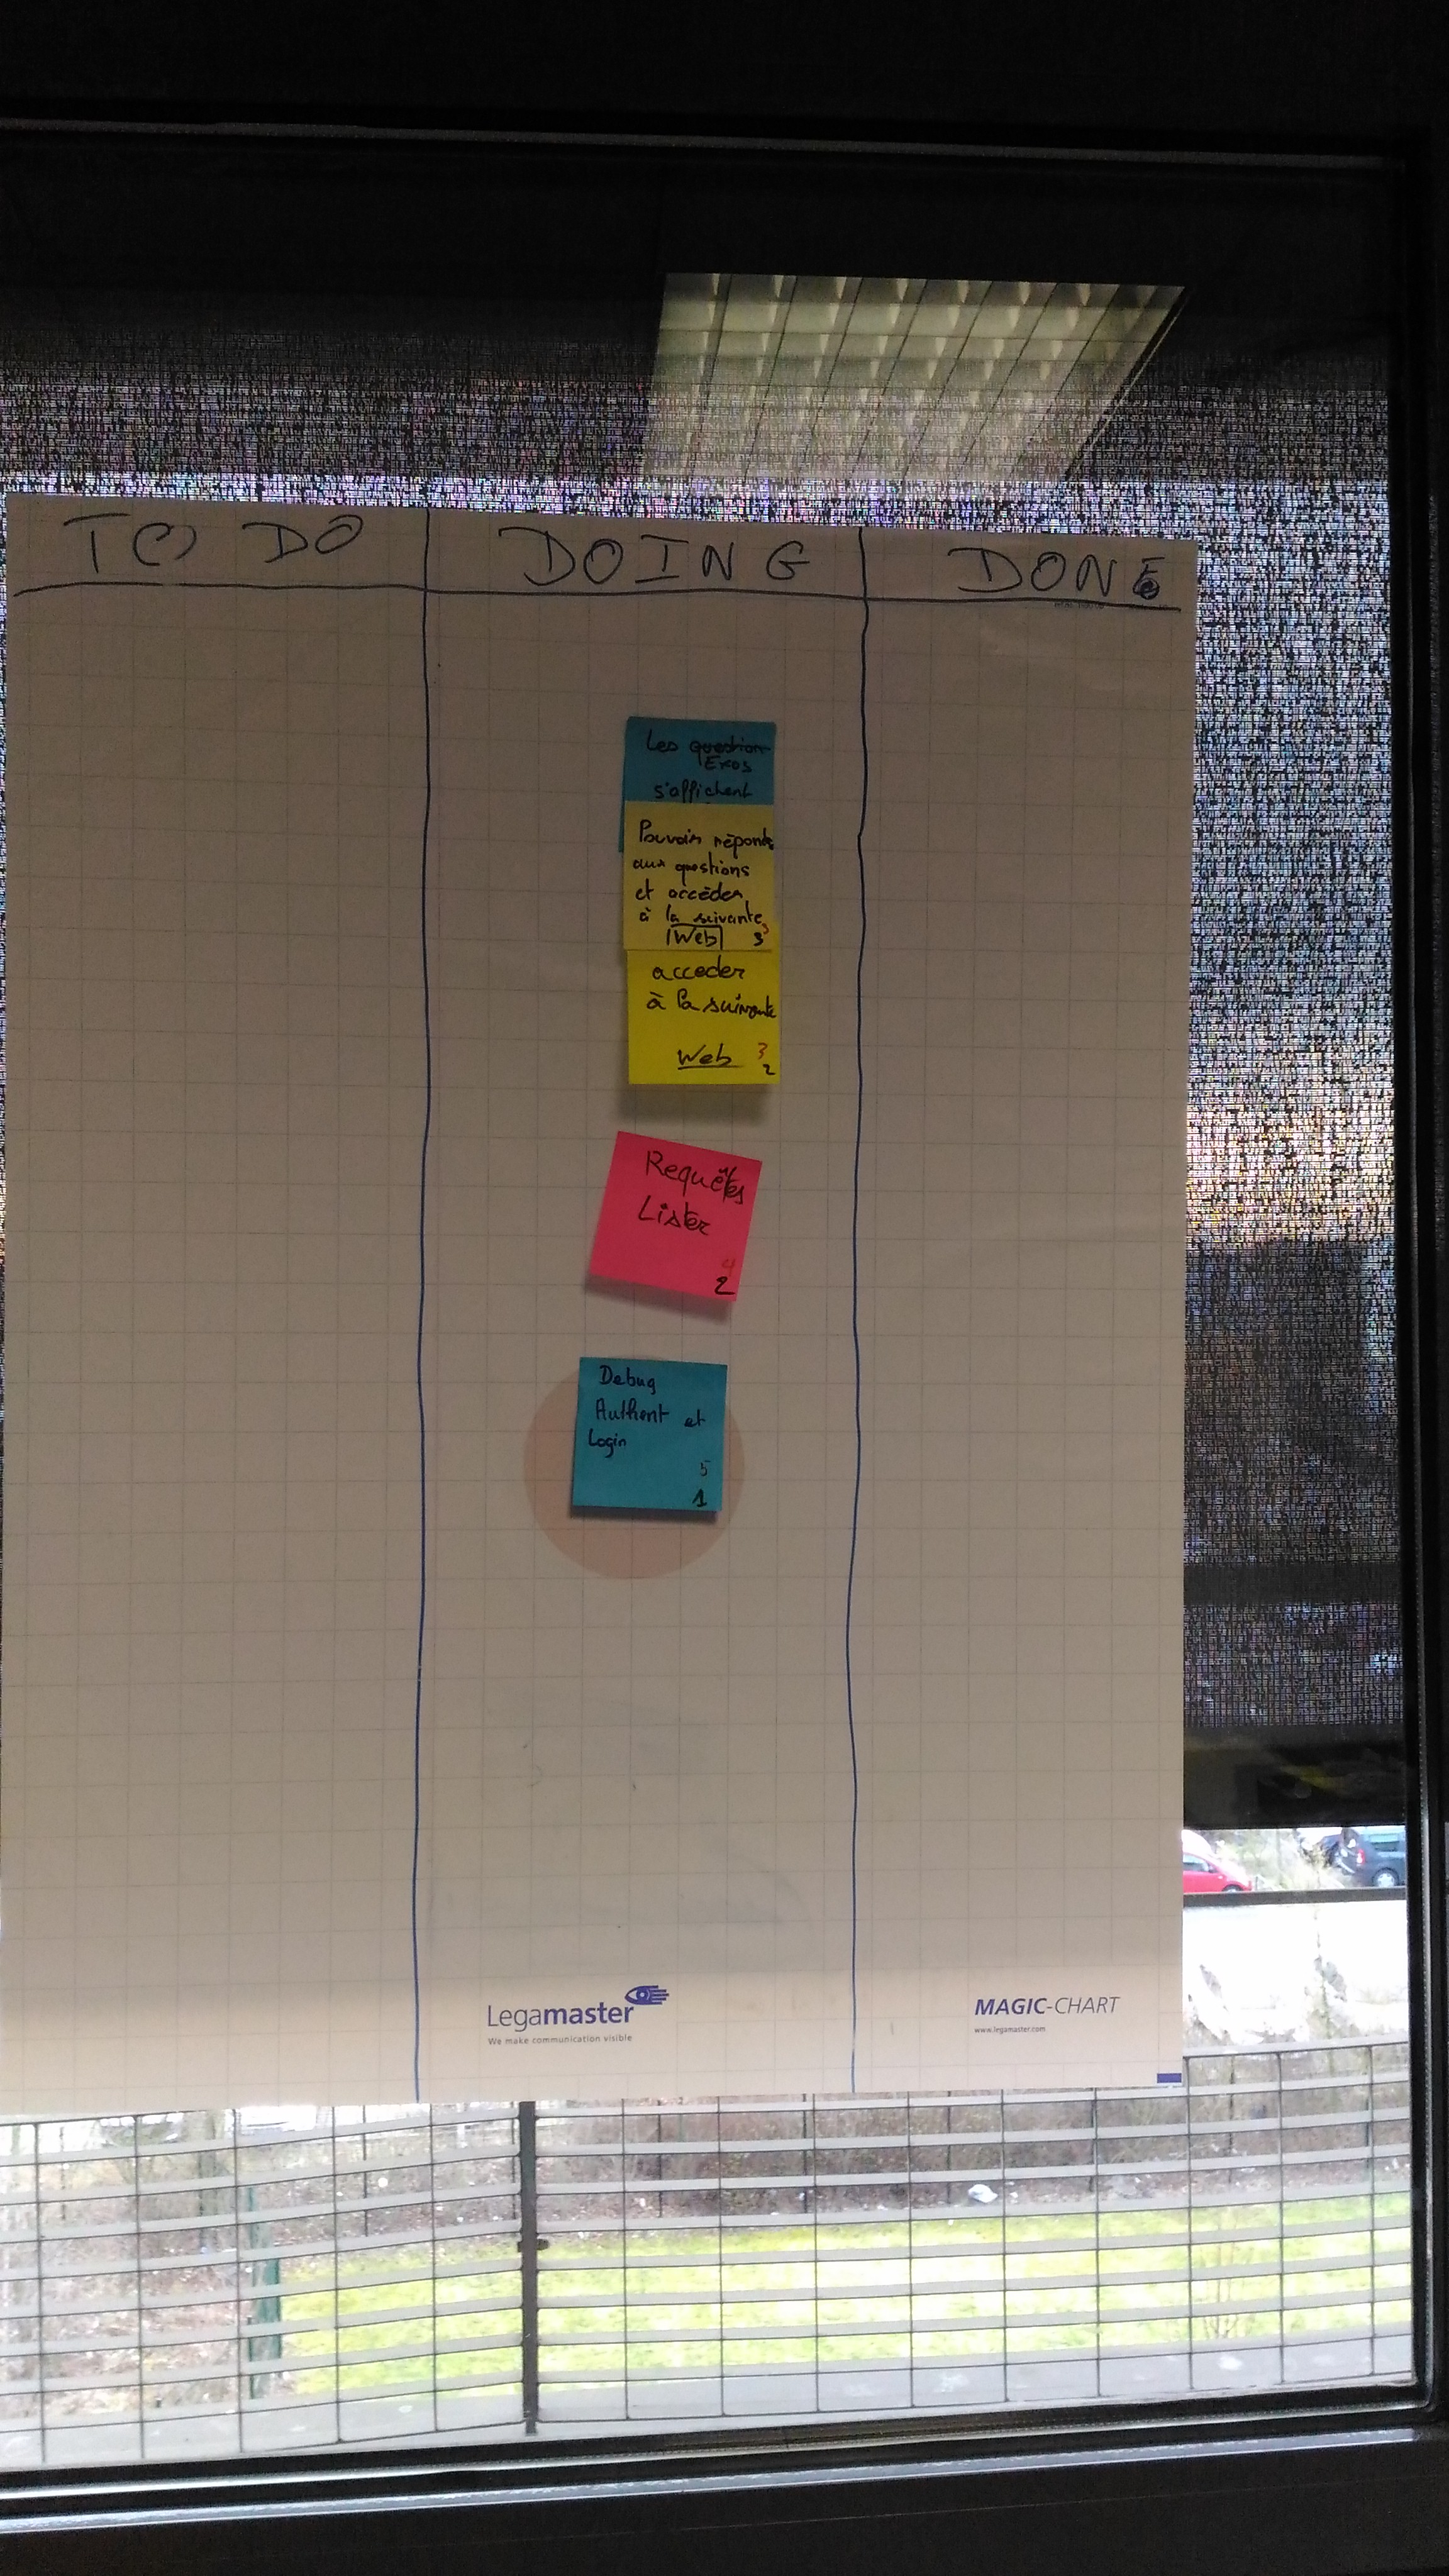 TO DO
DOING
DONE
Les question
Exos
s'affichent
Pouvoir répondre
aux questions
et accéder
à la suivante
Web
3
3
acceder
à la suivante
Web
3
2
Requêtes
Lister
4
2
Debug
Authent et
Login
5
1
Legamaster
We make communication visible
MAGIC-CHART
www.legamaster.com